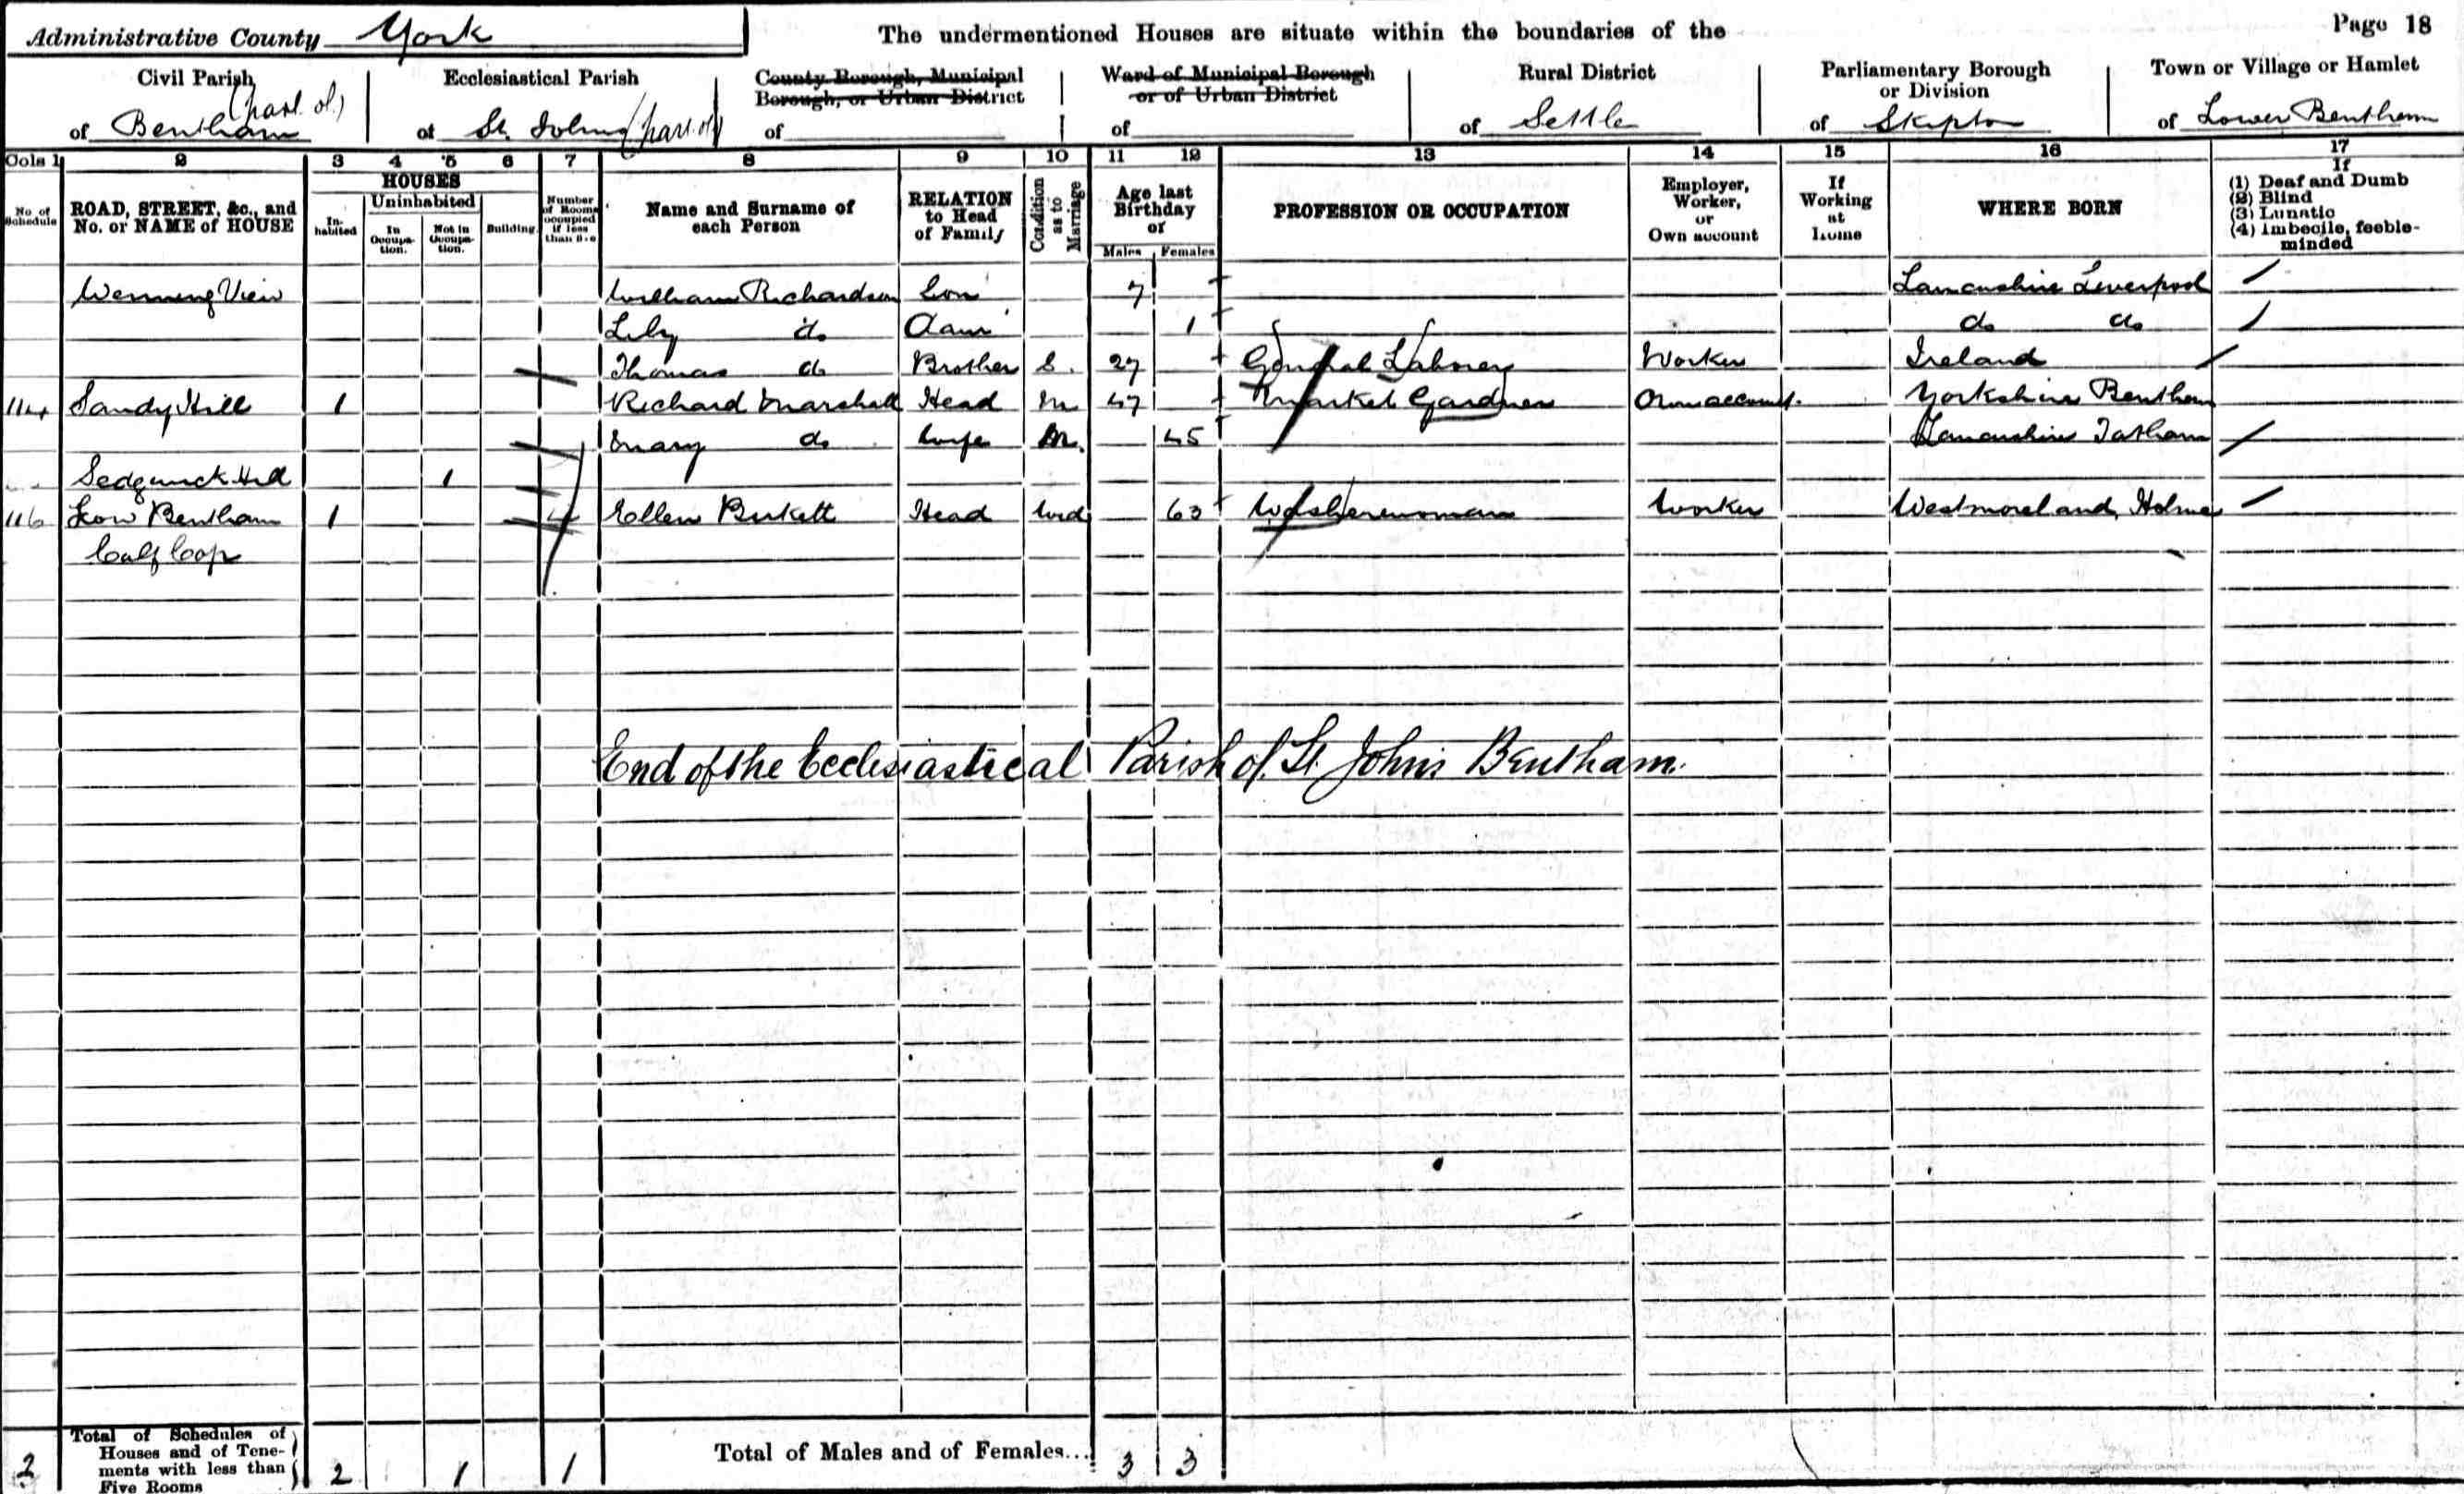 Administrative County York
The undermentioned Houses are situate within the boundaries of the
Page 18
Civil Parish of Bentham (part of)
Ecclesiastical Parish of St. Johns (part of)
County Borough, Municipal Borough, or Urban District of
Ward of Municipal Borough or of Urban District of
Rural District of Settle
Parliamentary Borough or Division of Skipton
Town or Village or Hamlet of Lower Bentham
Cols 1 2 3 4 5 6 7 8 9 10 11 12 13 14 15 16 17
No. of Schedule
ROAD, STREET, &c., and No. or NAME of HOUSE
HOUSES
Inhabited
Uninhabited
In Occupation.
Not in Occupation.
Building
Number of Rooms occupied if less than five
Name and Surname of each Person
RELATION to Head of Family
Condition as to Marriage
Age last Birthday of
Males Females
PROFESSION OR OCCUPATION
Employer, Worker, or Own account
If Working at Home
WHERE BORN
If
(1) Deaf and Dumb
(2) Blind
(3) Lunatic
(4) Imbecile, feeble-minded
Wenning View William Richardson Son 7 Lancashire Liverpool
Lily do Daur 1 do do
Thomas do Brother S. 27 General Labourer Worker Ireland
114 Sandy Hill 1 Richard Marshall Head M 47 Market Gardner Own account. Yorkshire Bentham
Mary do Wife M. 45 Lancashire Tatham
Sedgwick Hill 1
116 Low Bentham 1 4 Ellen Birkett Head Wid 63 Washerwoman Worker Westmoreland, Holme
Calf Cop
End of the Ecclesiastical Parish of St. Johns Bentham.
2 Total of Schedules of Houses and of Tenements with less than Five Rooms 2 1 1 Total of Males and of Females... 3 3